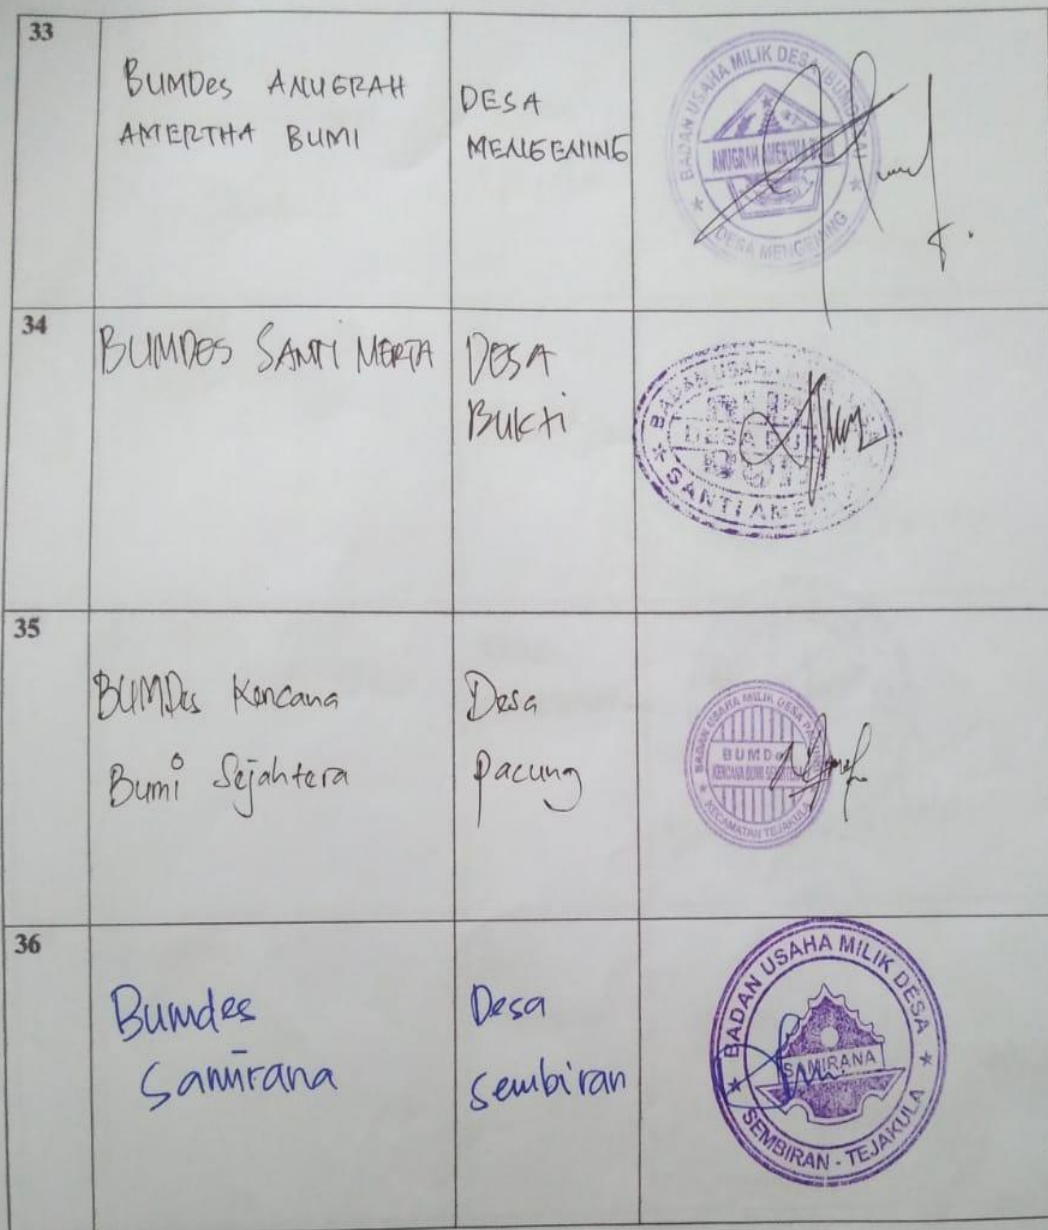 33
BUMDes ANUGRAH
AMERTHA BUMI
DESA
MENGENING
BADAN USAHA MILIK DESA
ANUGRAH AMERTHA BUMI
DESA MENGENING
34
BUMDES SANTI MERTA
DESA
BUKti
BADAN USAHA
DESA
SANTI
35
BUMDes Kencana
Bumi Sejahtera
Desa
pacung
BADAN USAHA MILIK DESA
BUMDes
KENCANA BUMI SEJAHTERA
KECAMATAN TEJAKULA
36
Bumdes
Samirana
Desa
Sembiran
BADAN USAHA MILIK DESA
SAMIRANA
SEMBIRAN - TEJAKULA